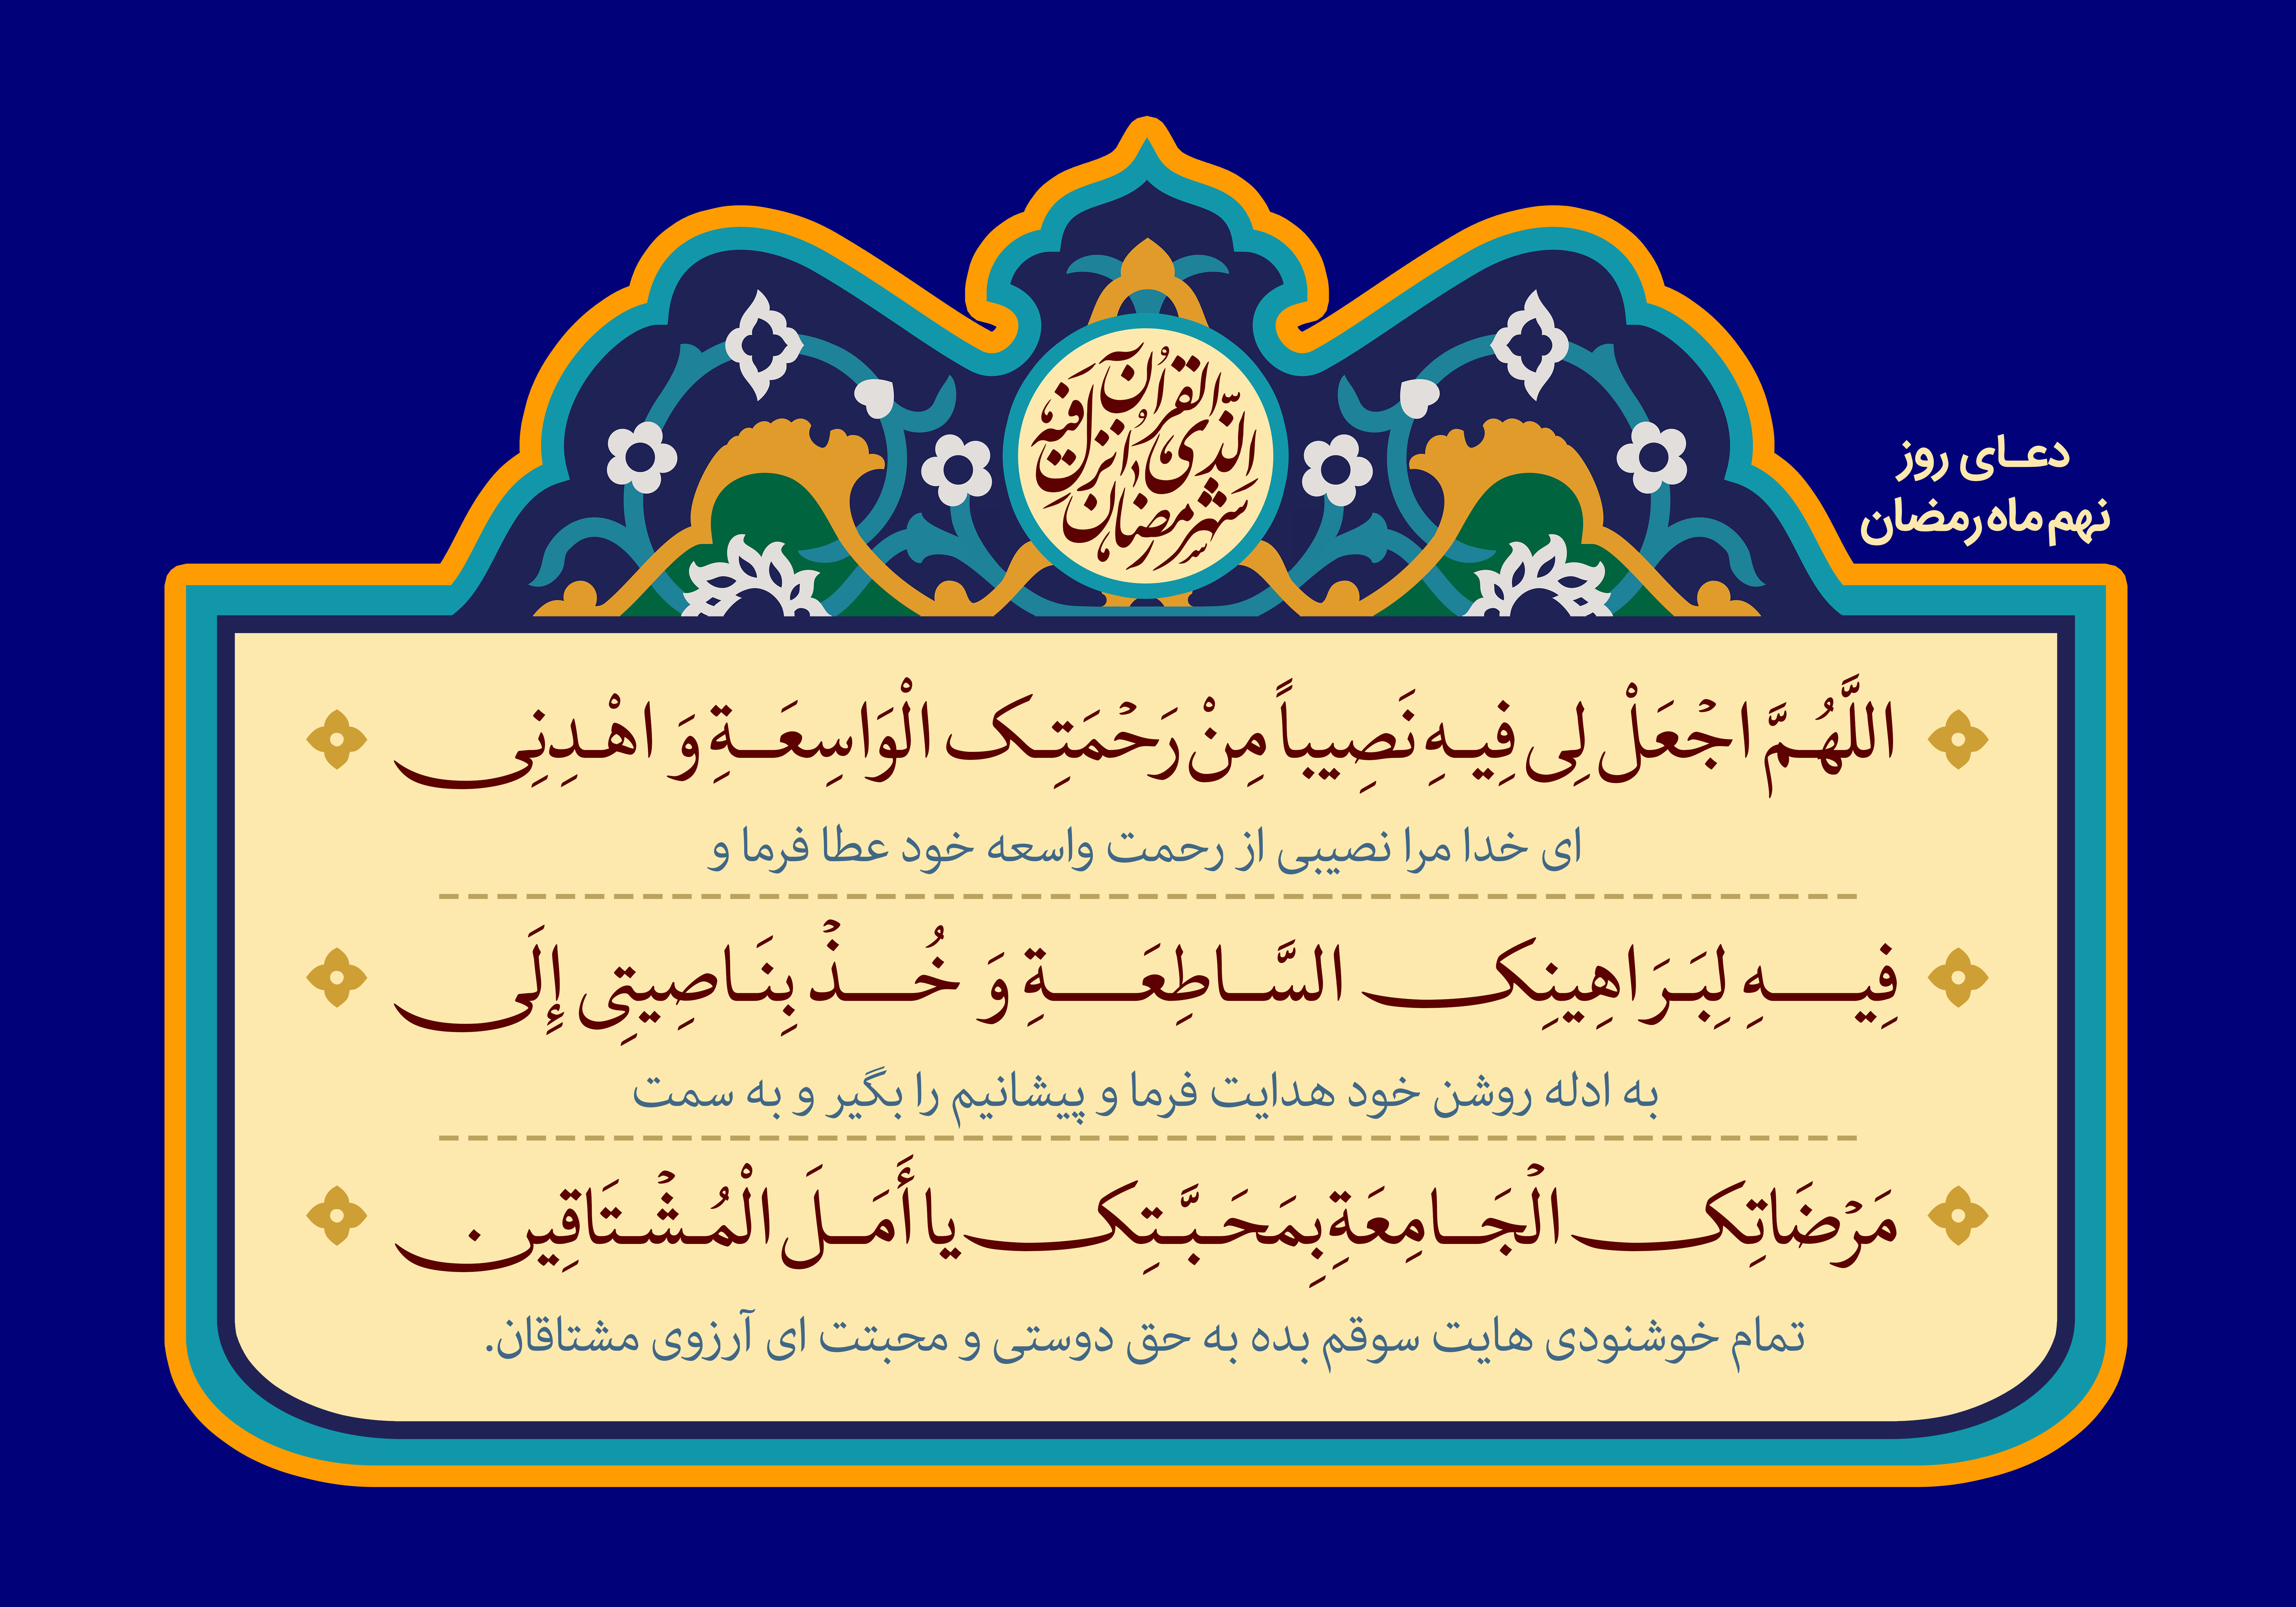 شَهْرُ رَمَضَانَ
الَّذِی أُنْزِلَ فِیهِ
الْقُرْآنُ
دعای روز
نهم ماه رمضان
اللَّهُمَّ اجْعَلْ لِی فِیهِ نَصِیباً مِنْ رَحْمَتِک الْوَاسِعَةِ وَ اهْدِنِی
ای خدا مرا نصیبی از رحمت واسعه خود عطا فرما و
فِیهِ لِبَرَاهِینِک السَّاطِعَةِ وَ خُذْ بِنَاصِیتِی إِلَی
به ادله روشن خود هدایت فرما و پیشانیم را بگیر و به سمت
مَرْضَاتِک الْجَامِعَةِ بِمَحَبَّتِک یا أَمَلَ الْمُشْتَاقِین.
تمام خوشنودی هایت سوقم بده به حق دوستی و محبتت ای آرزوی مشتاقان.